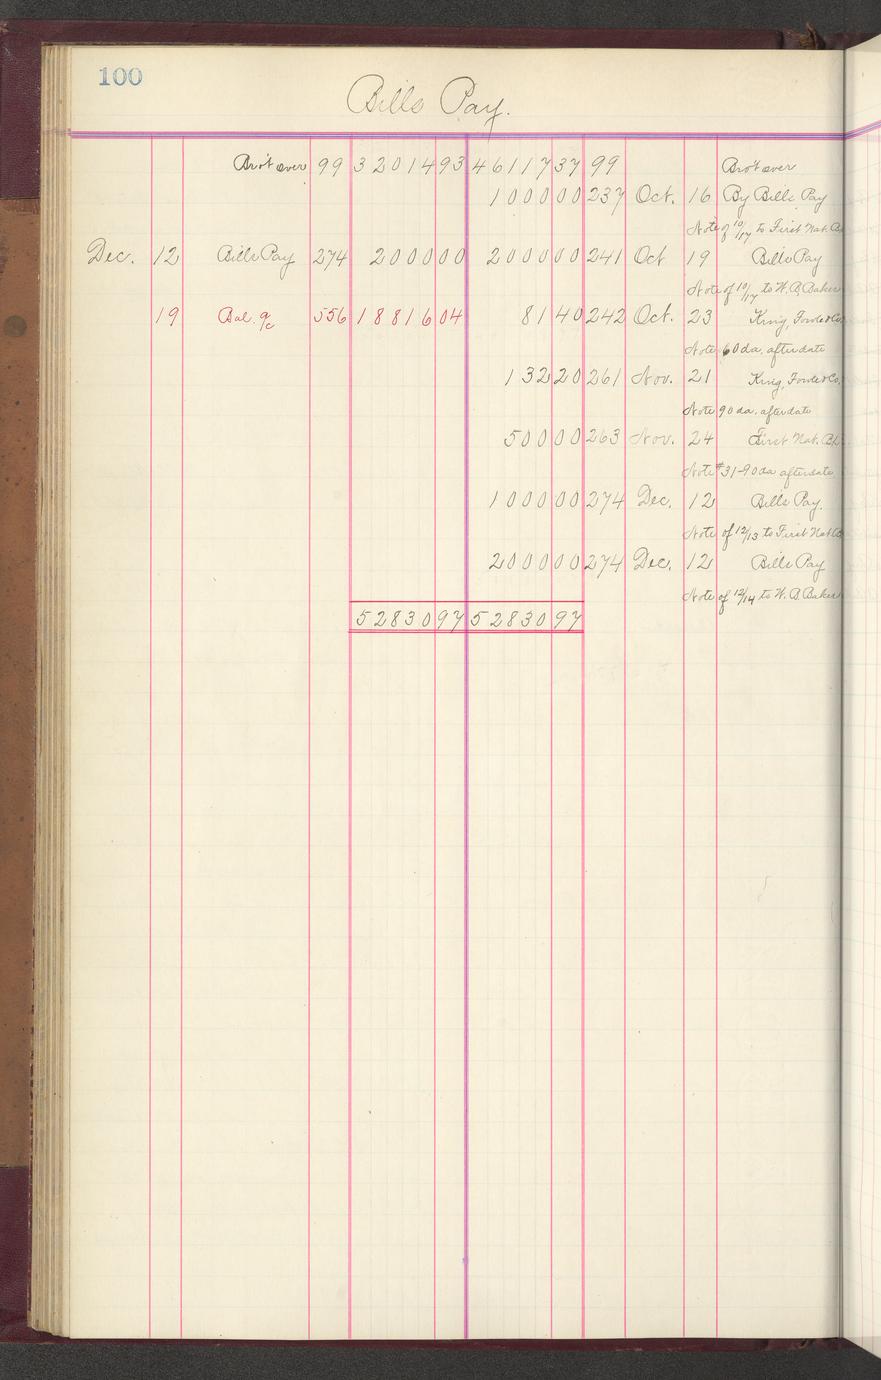 100
Bills Pay.
Bro't over 99 32014 93 46117 37 99 Bro't over
1000 00 237 Oct. 16 By Bills Pay
Note of 10/17 to First Nat. B
Dec. 12 Bills Pay 274 2000 00 2000 00 241 Oct 19 Bills Pay
Note of 10/17 to W. B. Baker
19 Bal. a/c 556 18816 04 81 40 242 Oct. 23 King, Fowle & Co.
Note 60 da. after date
132 20 261 Nov. 21 King, Fowle & Co.
Note 90 da. after date
500 00 263 Nov. 24 First Nat. Bk.
Note #31-90 da after date
1000 00 274 Dec. 12 Bills Pay.
Note of 12/13 to First Nat B
2000 00 274 Dec. 12 Bills Pay
Note of 12/14 to W. B. Baker
52830 97 52830 97